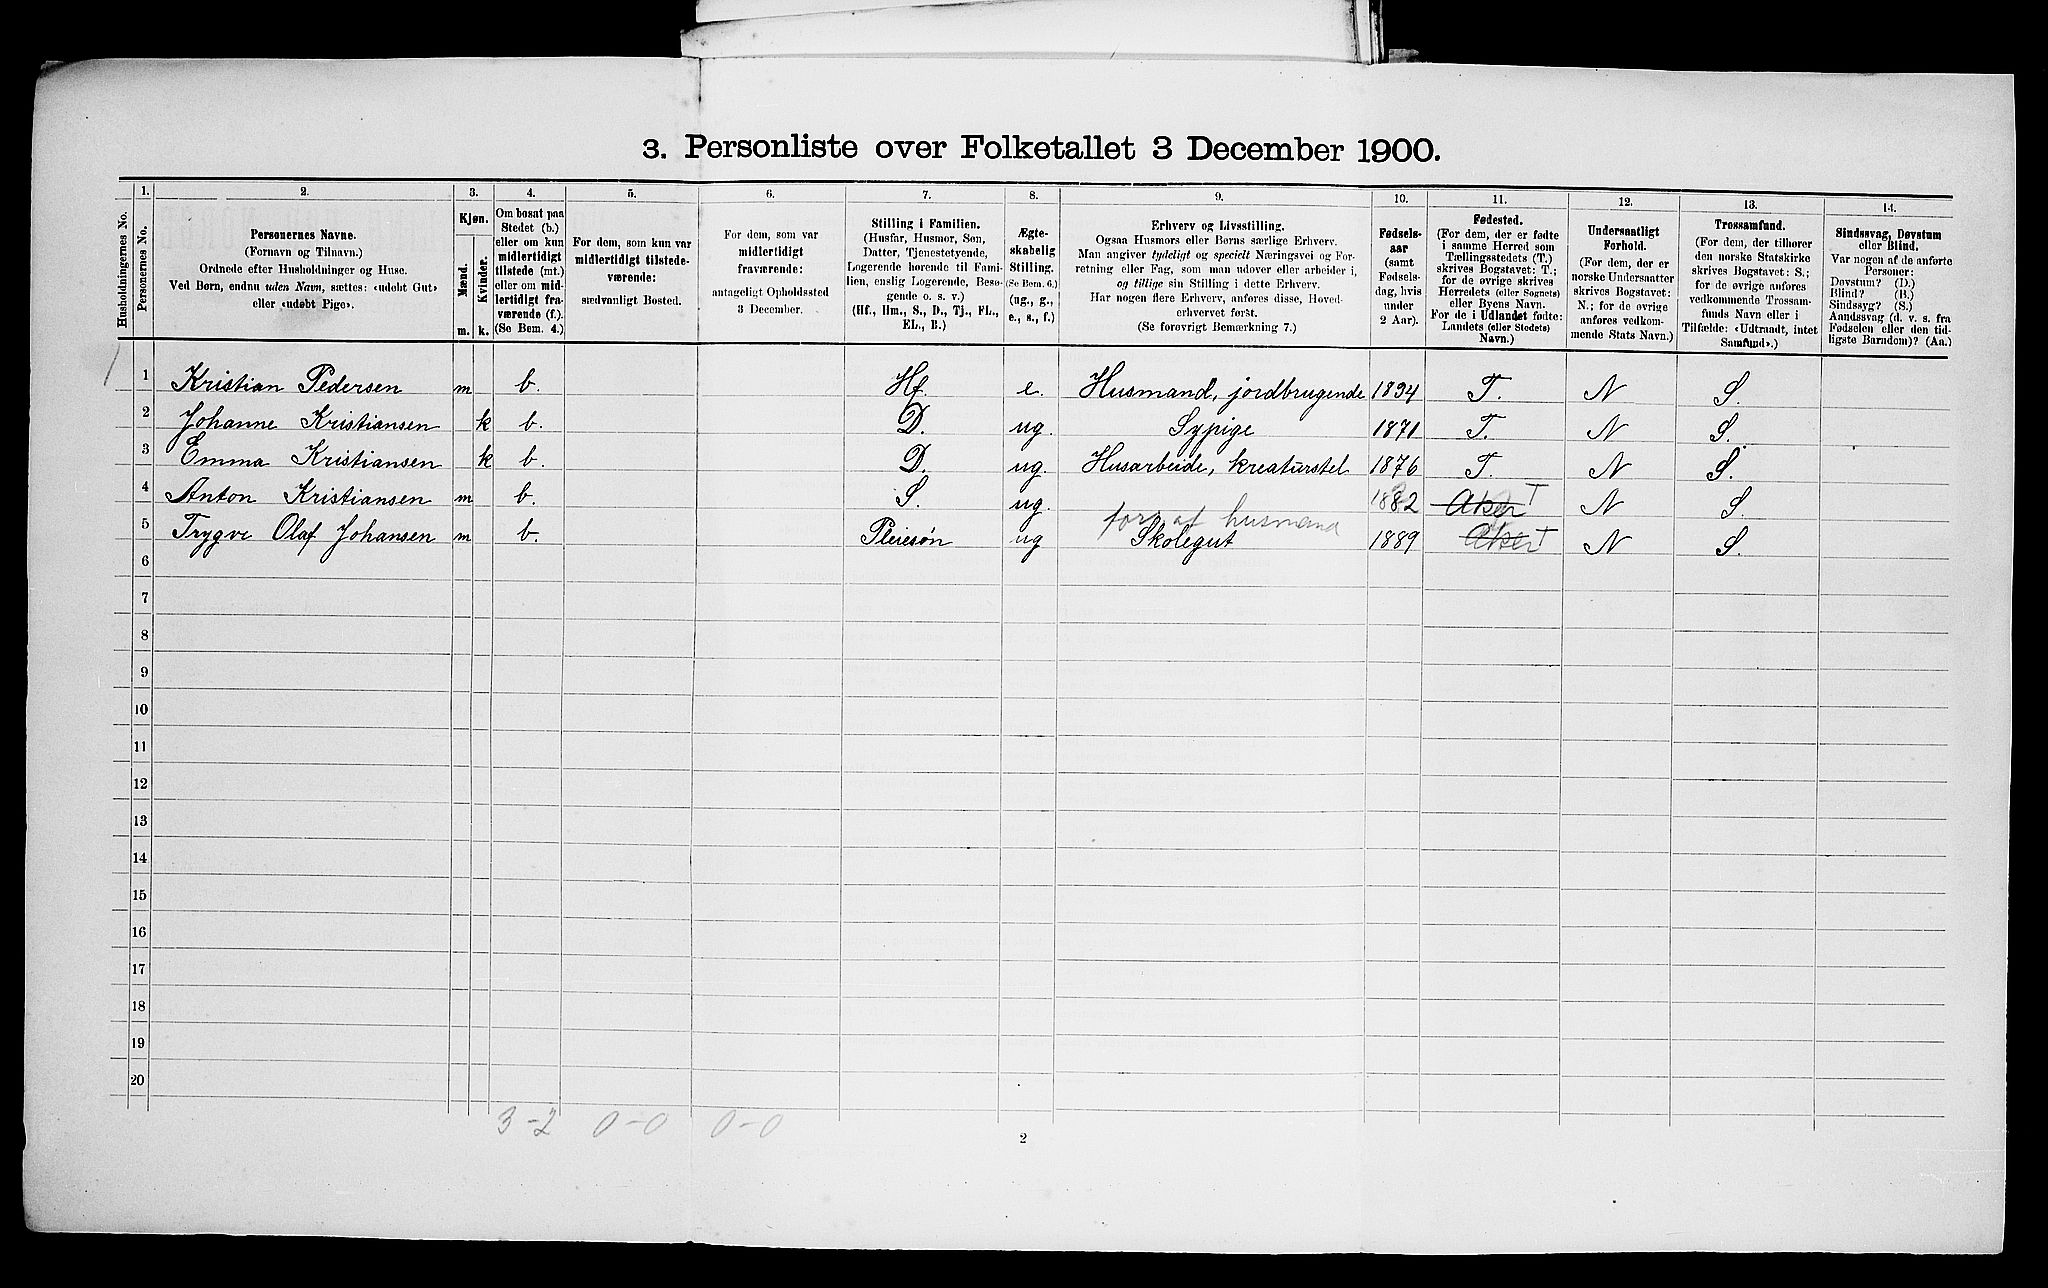 3. Personliste over Folketallet 3 December 1900.
Husholdningernes No.
1. Personernes No.
2. Personernes Navne.
(Fornavn og Tilnavn.)
Ordnede efter Husholdninger og Huse.
Ved Børn, endnu uden Navn, sættes: «udøbt Gut»
eller «udøbt Pige».
3. Kjøn.
Mænd. m.
Kvinder. k.
4. Om bosat paa
Stedet (b.)
eller om kun
midlertidigt
tilstede (mt.)
eller om mid-
lertidigt fra-
værende (f.).
(Se Bem. 4.)
5. For dem, som kun var
midlertidigt tilstede-
værende:
sædvanligt Bosted.
6. For dem, som var
midlertidigt
fraværende:
antageligt Opholdssted
3 December.
7. Stilling i Familien.
(Husfar, Husmor, Søn,
Datter, Tjenestetyende,
Logerende hørende til Fami-
lien, enslig Logerende, Besø-
gende o. s. v.)
(Hf., Hm., S., D., Tj., FL.,
EL., B.)
8. Ægte-
skabelig
Stilling.
(Se Bem. 6.)
(ug., g.,
e., s., f.)
9. Erhverv og Livsstilling.
Ogsaa Husmors eller Børns særlige Erhverv.
Man angiver tydeligt og specielt Næringsvei og For-
retning eller Fag, som man udover eller arbeider i,
og tillige sin Stilling i dette Erhverv.
Har nogen flere Erhverv, anføres disse, Hoved-
erhvervet først.
(Se forøvrigt Bemærkning 7.)
10. Fødsels-
aar
(samt
Fødsels-
dag, hvis
under
2 Aar).
11. Fødested.
(For dem, der er fødte
i samme Herred som
Tællingsstedets (T.)
skrives Bogstavet: T.;
for de øvrige skrives
Herredets (eller Sognets)
eller Byens Navn.
For de i Udlandet fødte:
Landets (eller Stedets)
Navn.)
12. Undersaatligt
Forhold.
(For dem, der er
norske Undersaatter
skrives Bogstavet:
N.; for de øvrige
anføres vedkom-
mende Stats Navn.)
13. Trossamfund.
(For dem, der tilhører
den norske Statskirke
skrives Bogstavet: S.;
for de øvrige anføres
vedkommende Trossam-
funds Navn eller i
Tilfælde: «Udtraadt, intet
Samfund».)
14. Sindssvag, Døvstum
eller Blind.
Var nogen af de anførte
Personer:
Døvstum? (D.)
Blind? (B.)
Sindssyg? (S.)
Aandssvag (d. v. s. fra
Fødselen eller den tid-
ligste Barndom)? (Aa.)
1 1 Kristian Pedersen m b. Hf. e. Husmand, jordbrugende 1834 T. N S.
2 Johanne Kristiansen k b. D. ug. Sypige 1871 T. N S.
3 Emma Kristiansen k b. D. ug. Husarbeide, kreaturstel 1876 T. N S.
4 Anton Kristiansen m b. S. ug. 1882 Aker T N S
fors. af husmand
5 Trygve Olaf Johansen m b. Pleiesøn ug Skolegut 1889 Aker T N S.
6
7
8
9
10
11
12
13
14
15
16
17
18
19
20
3-2 0-0 0-0
2